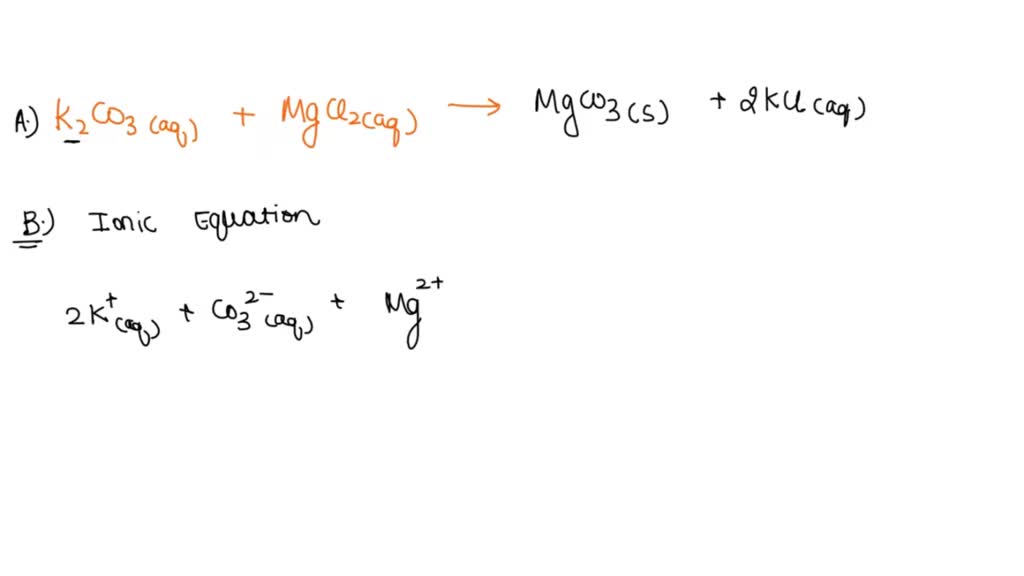 A.) K₂CO₃ (aq) + MgCl₂(aq) → MgCO₃(s) + 2KCl(aq)
B.) Ionic Equation
2K⁺(aq) + CO₃²⁻(aq) + Mg²⁺